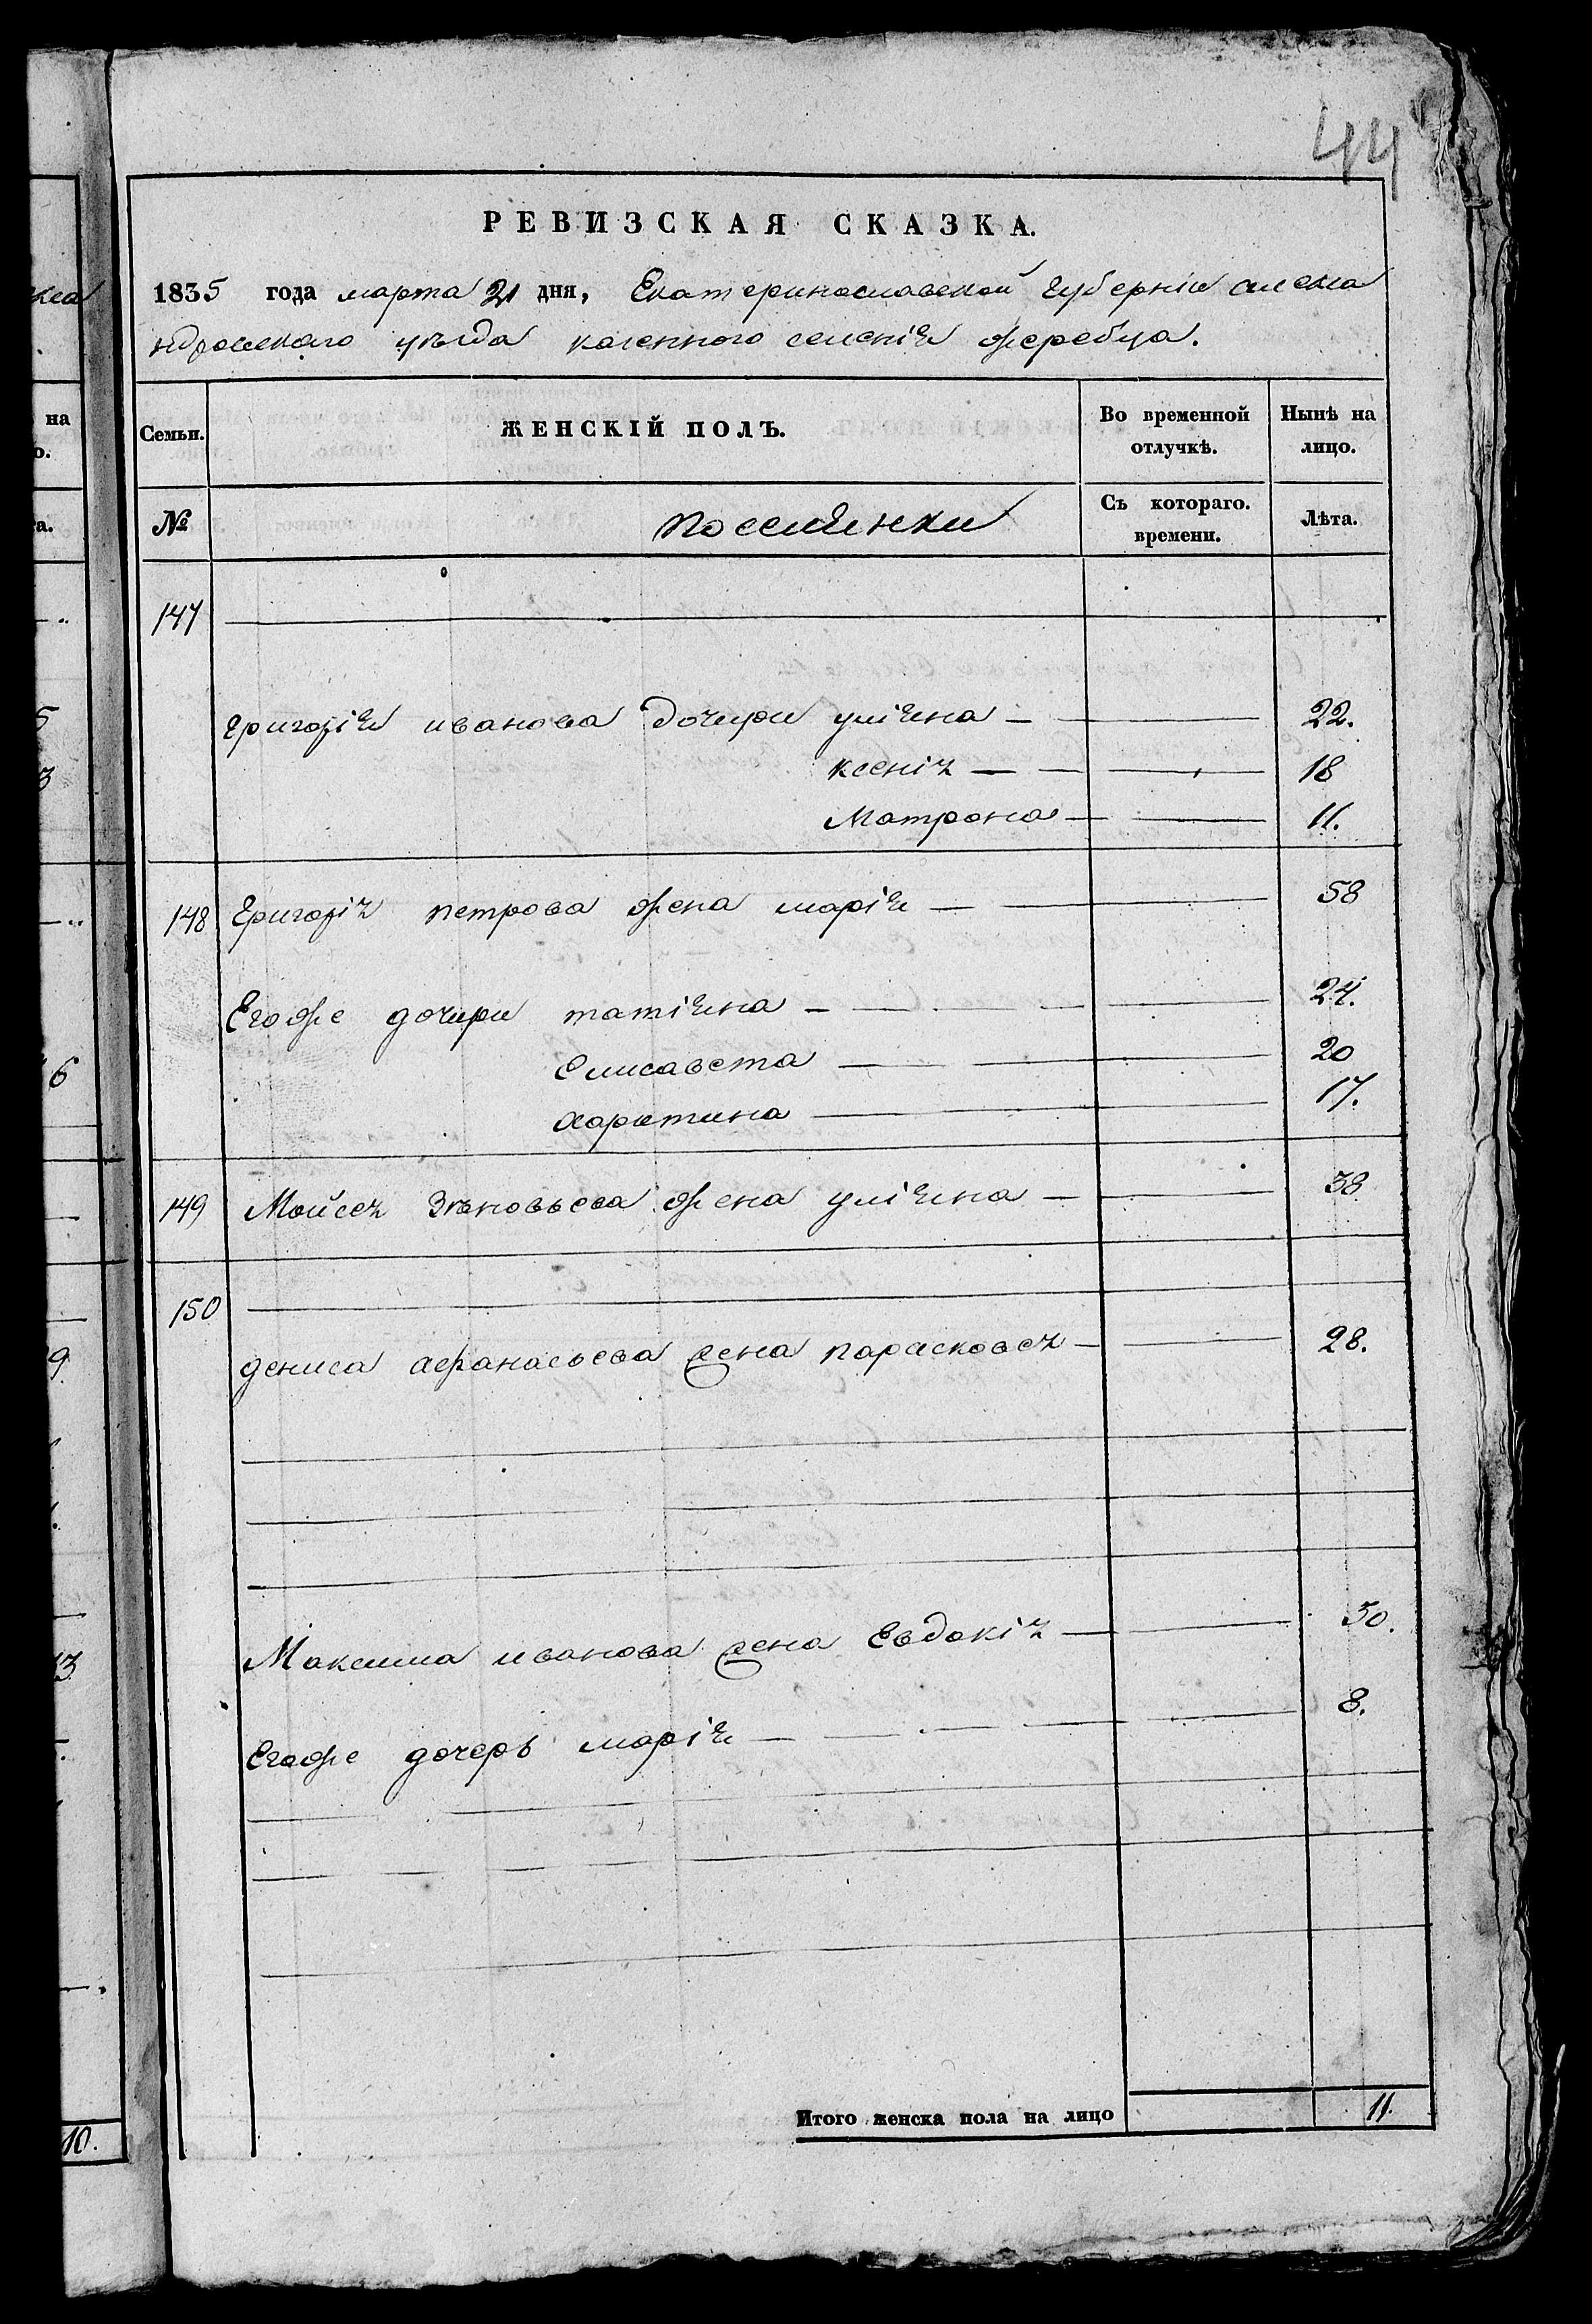 44
РЕВИЗСКАЯ СКАЗКА.
1835 года марта 21 дня, Екатеринославской губернии алекса
ндровскаго уѣзда казенного селенія жеребца.
Семьи.
ЖЕНСКІЙ ПОЛЪ.
Во временной отлучкѣ.
Нынѣ на лицо.
№
поселянки
Съ котораго. времени.
Лѣта.
147
григорія иванова дочери уліяна — 22.
ксенія — 18
Матрона — 11.
148 григорія петрова жена марія — 58
Егоже дочери татіяна — 24.
Елисавета — 20
харитина — 17.
149 Мойсея Зѣновьева жена уліяна — 38
150
дениса афанасьева жена парасковея — 28.
Максима иванова жена Евдокія — 50.
Егоже дочерь марія — 8.
Итого женска пола на лицо 11.
на
10.